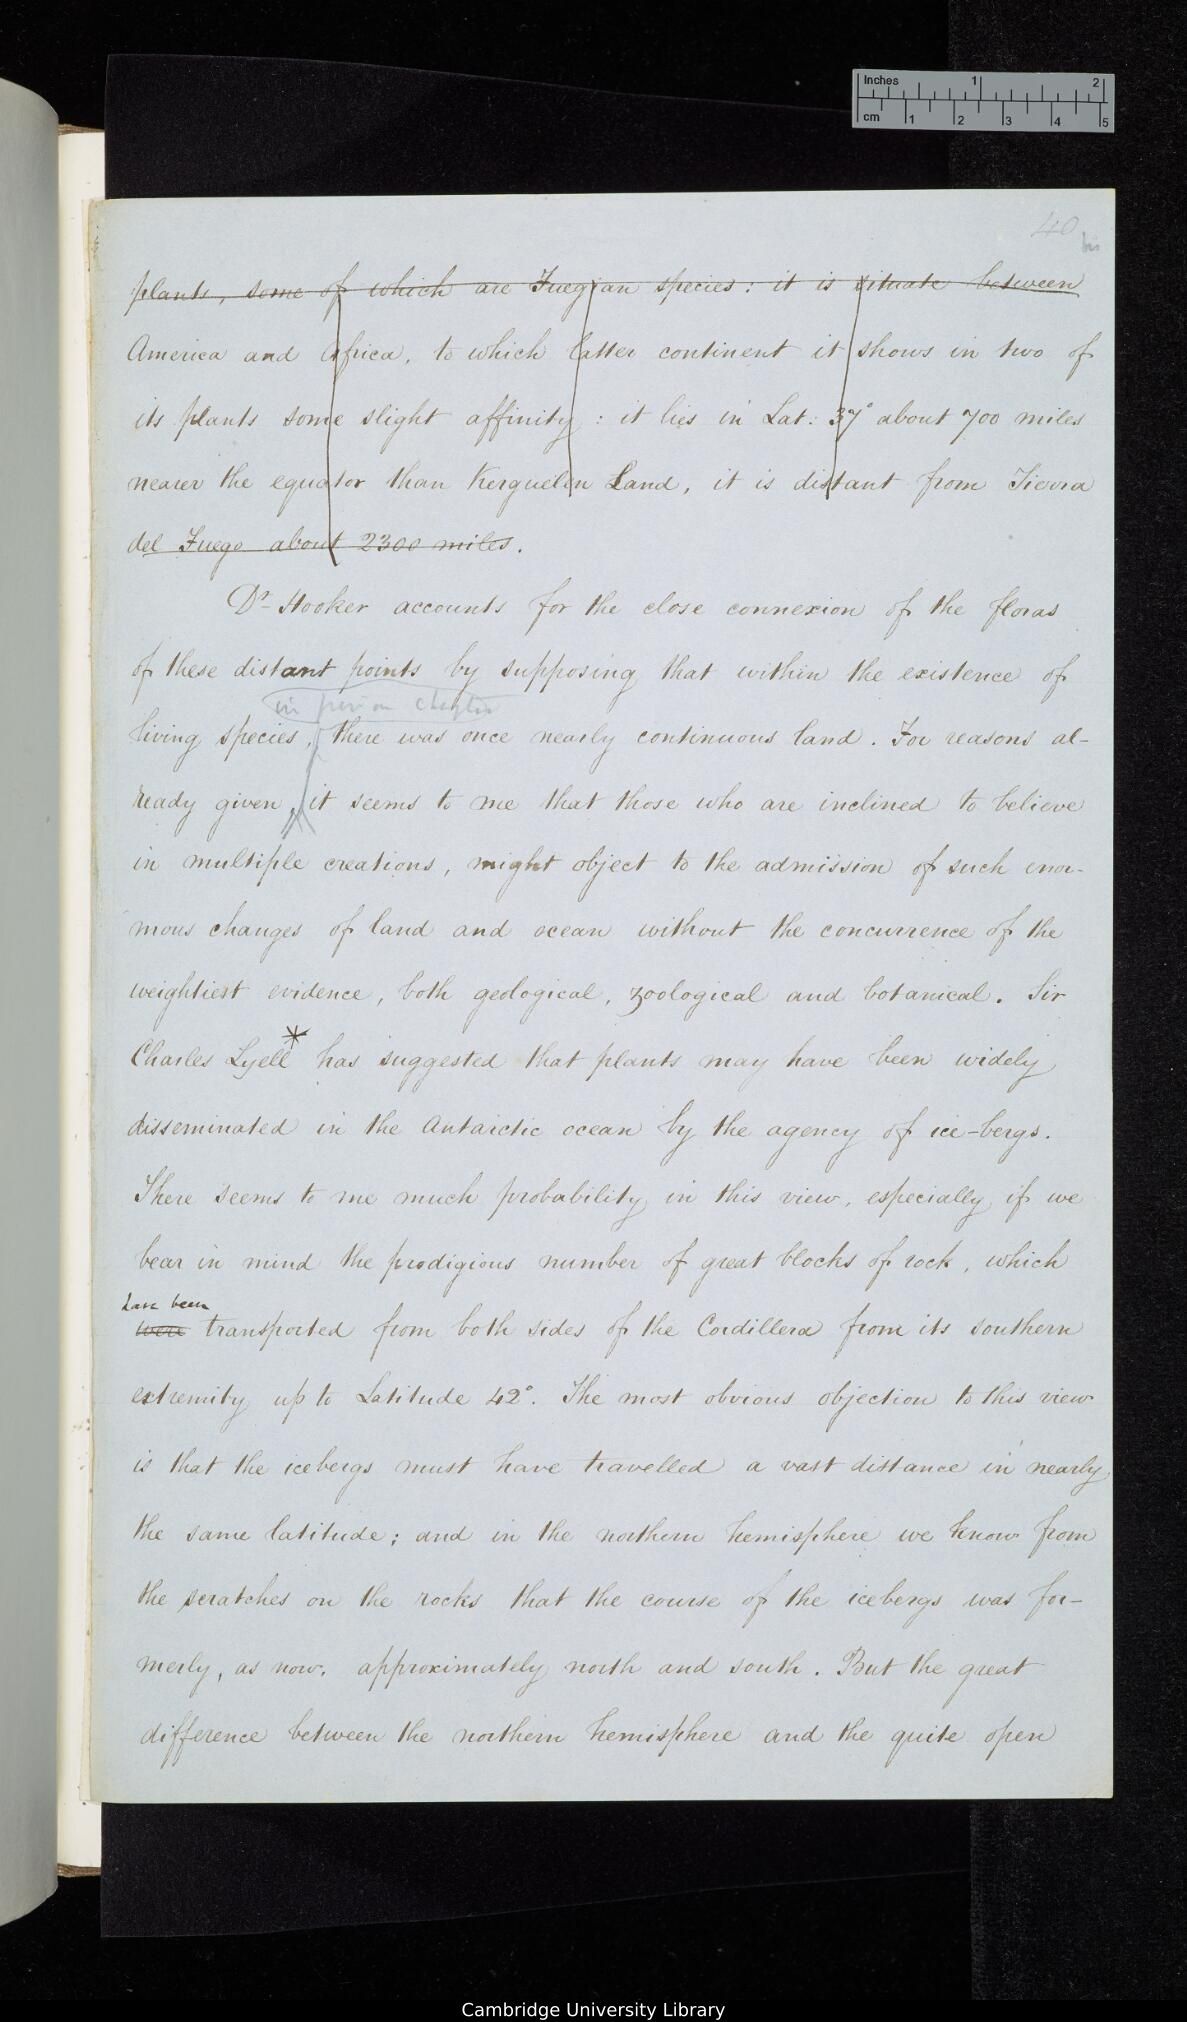 Inches 1 2
cm 1 2 3 4 5
40
plants, some of which are Fuegian species: it is situate between
America and Africa, to which latter continent it shows in two of
its plants some slight affinity: it lies in Lat: 37° about 700 miles
nearer the equator than Kerguelen Land, it is distant from Tierra
del Fuego about 2300 miles.
Dr Hooker accounts for the close connexion of the floras
of these distant points by supposing that within the existence of
in chapter
living species, there was once nearly continuous land. For reasons al-
ready given, it seems to me that those who are inclined to believe
in multiple creations, might object to the admission of such enor-
mous changes of land and ocean without the concurrence of the
weightiest evidence, both geological, zoological and botanical. Sir
Charles Lyell* has suggested that plants may have been widely
disseminated in the Antarctic ocean by the agency of ice-bergs.
There seems to me much probability in this view, especially if we
bear in mind the prodigious number of great blocks of rock, which
have been
were transported from both sides of the Cordillera from its southern
extremity up to Latitude 42°. The most obvious objection to this view
is that the icebergs must have travelled a vast distance in nearly
the same latitude; and in the northern hemisphere we know from
the scratches on the rocks that the course of the icebergs was for-
merly, as now, approximately north and south. But the great
difference between the northern hemisphere and the quite open
Cambridge University Library